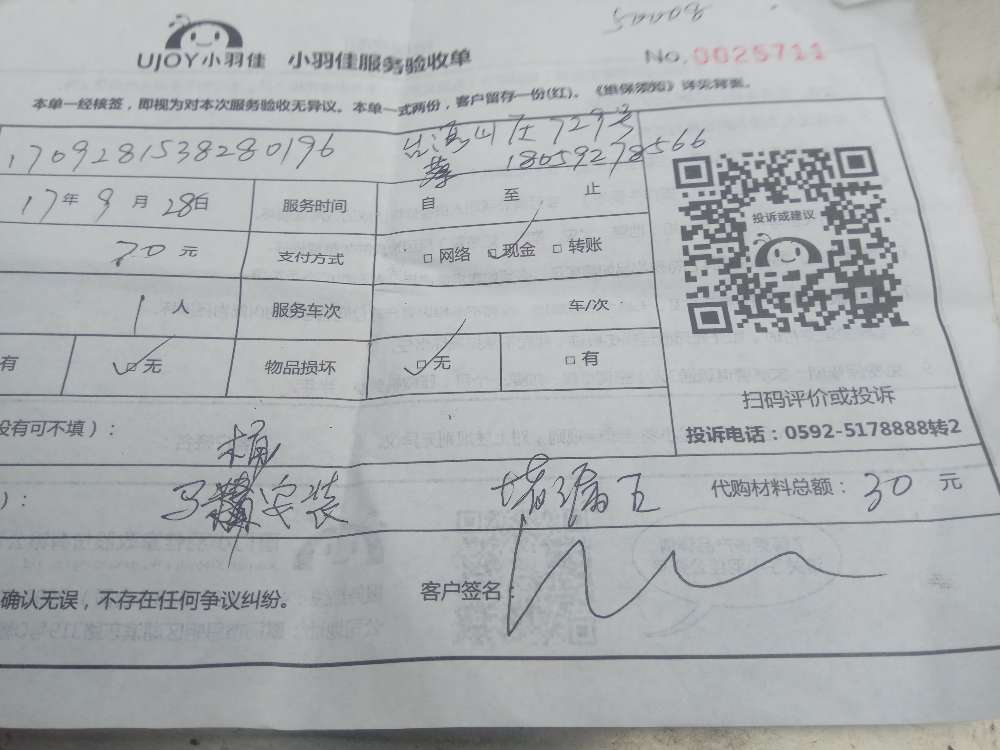 UJOY小羽佳 小羽佳服务验收单 No. 0025711
本单一经核签，即视为对本次服务验收无异议。本单一式两份，客户留存一份(红)。《维保须知》详见背面。
1709281538280196 729号
18059278566
17年9月28日 服务时间 自 至 止
投诉或建议
70元 支付方式 □网络 □现金 □转账
1人 服务车次 车/次
有 □无 物品损坏 □无 □有
扫码评价或投诉
没有可不填）： 投诉电话：0592-5178888转2
桶
）： 马 安装 堵漏王 代购材料总额：30元
确认无误，不存在任何争议纠纷。 客户签名：